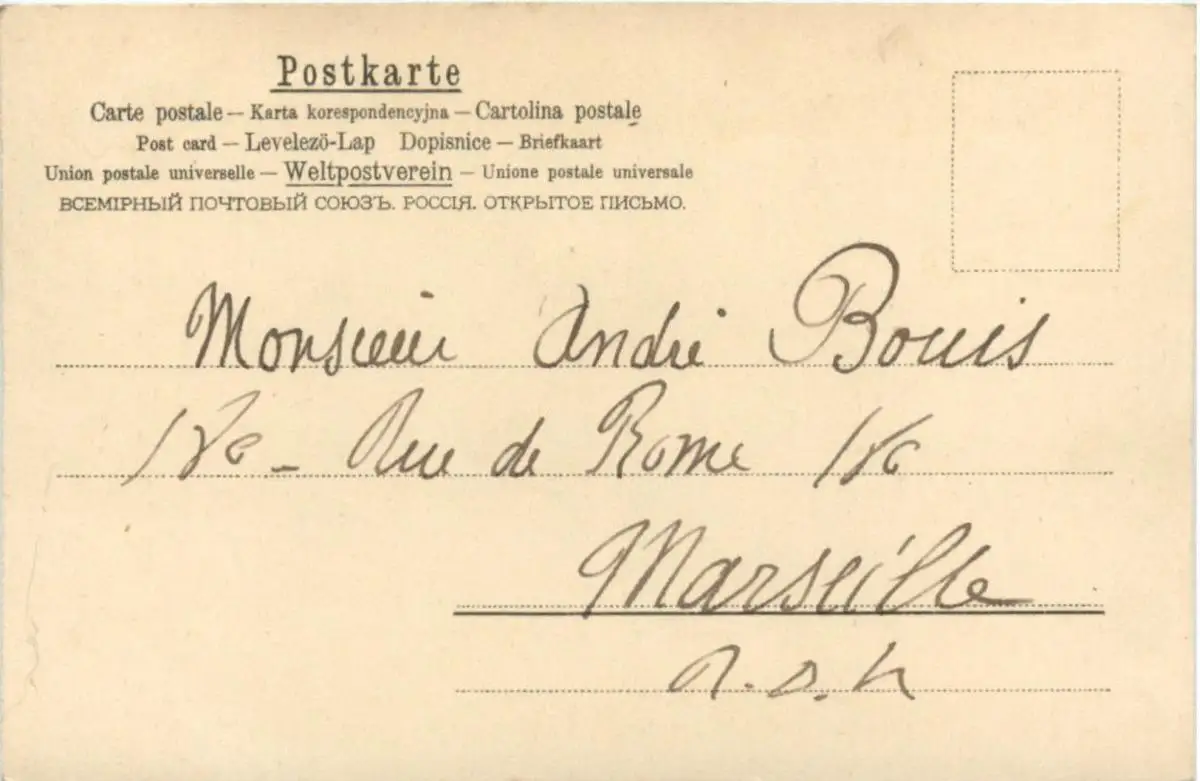 Postkarte
Carte postale — Karta korespondencyjna — Cartolina postale
Post card — Levelező-Lap Dopisnice — Briefkaart
Union postale universelle — Weltpostverein — Unione postale universale
ВСЕМІРНЫЙ ПОЧТОВЫЙ СОЮЗЪ. РОССІЯ. ОТКРЫТОЕ ПИСЬМО.
Monsieur André Bouis
- Rue de Rome
Marseille